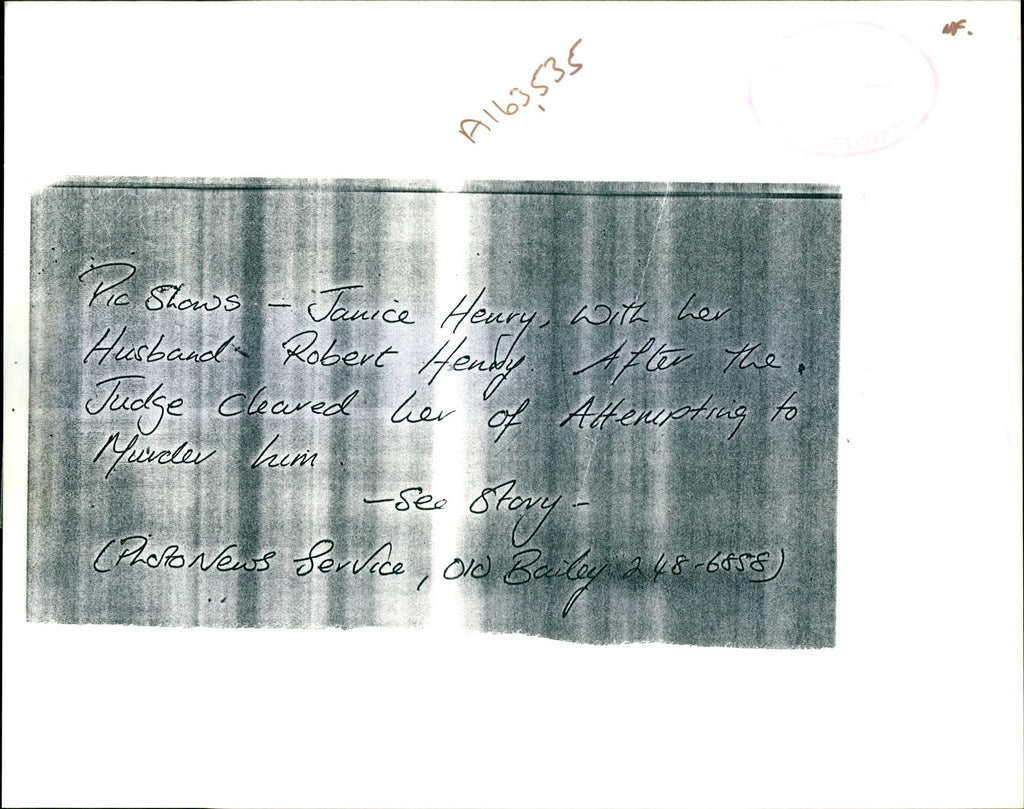 NF.
A163,535
LIBRA
Pic Shows - Janice Henry, with her
Husband - Robert Henry. After the.
Judge cleared her of Attempting to
Murder him.
- See Story -
(PhotoNews Service, Old Bailey 248-6858)